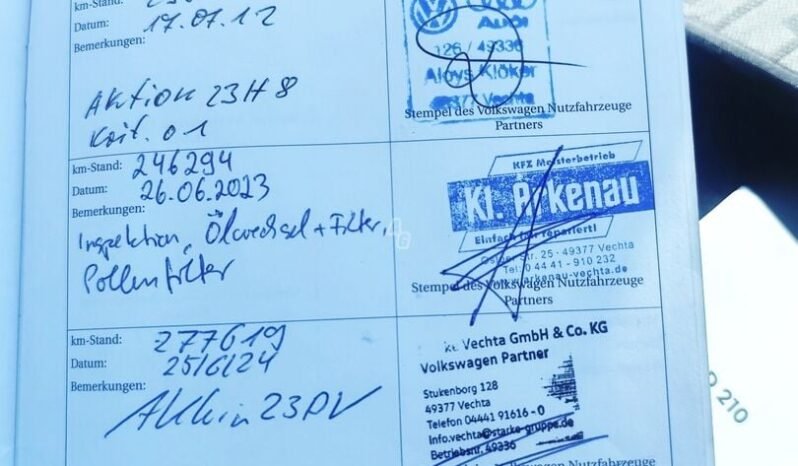 km-Stand:
Datum: 17.07.12
Bemerkungen:
Aktion 23H8
AUDI
126 / 49336
Aloys Klöker
49377 Vechta
Stempel des Volkswagen Nutzfahrzeuge
Partners
km-Stand: 246294
Datum: 26.06.2023
Bemerkungen:
Inspektion, Ölwechsel + Filter,
Pollenfilter
KFZ Meisterbetrieb
Kl. Arkenau
Einfach fair repariert!
Str. 25 - 49377 Vechta
Tel: 0 44 41 - 910 232
arkenau-vechta.de
Stempel des Volkswagen Nutzfahrzeuge
Partners
km-Stand: 277619
Datum: 25/6/24
Bemerkungen:
23DV
Vechta GmbH & Co. KG
Volkswagen Partner
Stukenborg 128
49377 Vechta
Telefon 04441 91616 - 0
Info.vechta@starke-gruppe.de
Betriebsnr. 49336
Volkswagen Nutzfahrzeuge
210